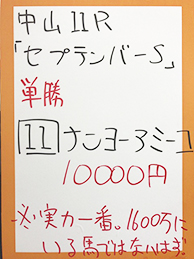 中山11R
「セプテンバーS」
単勝
11 ナンヨーアミーコ
10000円
※実力一番。1600万に
いる馬ではないはず。